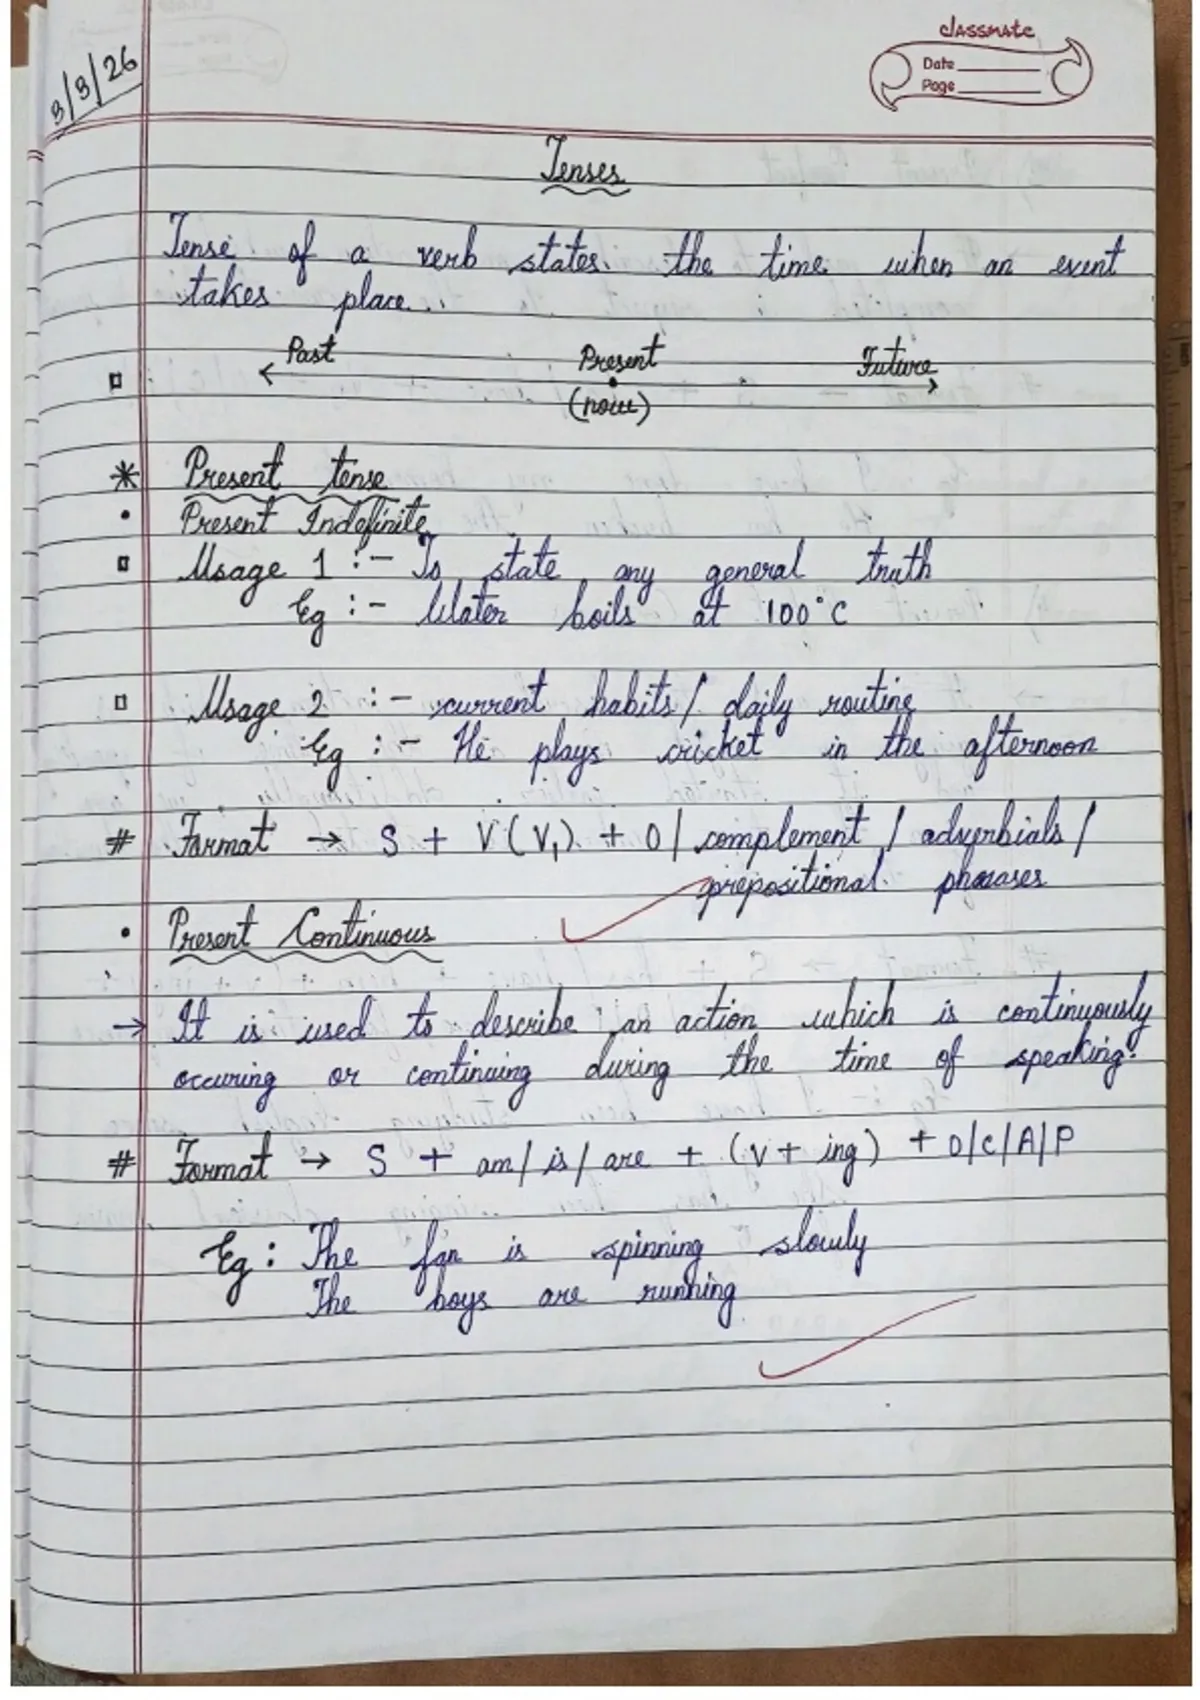 classmate
Date
Page
3/3/26
Tenses
Tense of a verb states the time when an event
takes place.
Past Present Future
(now)
* Present tense
• Present Indefinite
Usage 1 :- To state any general truth
Eg :- Water boils at 100°C
Usage 2 :- current habits / daily routine
Eg :- He plays cricket in the afternoon
# Format → S + V (V₁) + O / complement / adverbials /
prepositional phrases
• Present Continuous
→ It is used to describe an action which is continuously
occuring or continuing during the time of speaking.
# Format → S + am / is / are + (V + ing) + O/C/A/P
Eg : The fan is spinning slowly
The boys are running